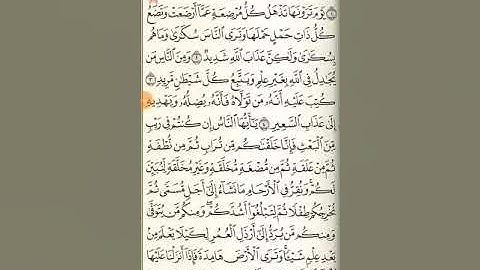 يَوْمَ تَرَوْنَهَا تَذْهَلُ كُلُّ مُرْضِعَةٍ عَمَّا أَرْضَعَتْ وَتَضَعُ
كُلُّ ذَاتِ حَمْلٍ حَمْلَهَا وَتَرَى النَّاسَ سُكَارَىٰ وَمَا هُم
بِسُكَارَىٰ وَلَٰكِنَّ عَذَابَ اللَّهِ شَدِيدٌ ۝٢ وَمِنَ النَّاسِ مَن
يُجَادِلُ فِي اللَّهِ بِغَيْرِ عِلْمٍ وَيَتَّبِعُ كُلَّ شَيْطَانٍ مَّرِيدٍ ۝٣
كُتِبَ عَلَيْهِ أَنَّهُ مَن تَوَلَّاهُ فَأَنَّهُ يُضِلُّهُ وَيَهْدِيهِ
إِلَىٰ عَذَابِ السَّعِيرِ ۝٤ يَا أَيُّهَا النَّاسُ إِن كُنتُمْ فِي رَيْبٍ
مِّنَ الْبَعْثِ فَإِنَّا خَلَقْنَاكُم مِّن تُرَابٍ ثُمَّ مِن نُّطْفَةٍ
ثُمَّ مِنْ عَلَقَةٍ ثُمَّ مِن مُّضْغَةٍ مُّخَلَّقَةٍ وَغَيْرِ مُخَلَّقَةٍ لِّنُبَيِّنَ
لَكُمْ ۚ وَنُقِرُّ فِي الْأَرْحَامِ مَا نَشَاءُ إِلَىٰ أَجَلٍ مُّسَمًّى ثُمَّ
نُخْرِجُكُمْ طِفْلًا ثُمَّ لِتَبْلُغُوا أَشُدَّكُمْ ۖ وَمِنكُم مَّن يُتَوَفَّىٰ
وَمِنكُم مَّن يُرَدُّ إِلَىٰ أَرْذَلِ الْعُمُرِ لِكَيْلَا يَعْلَمَ مِن
بَعْدِ عِلْمٍ شَيْئًا ۚ وَتَرَى الْأَرْضَ هَامِدَةً فَإِذَا أَنزَلْنَا عَلَيْهَا